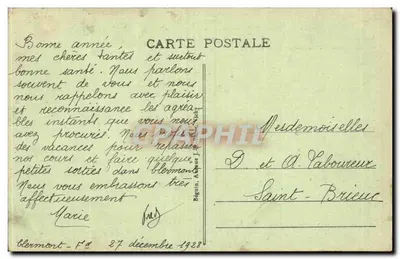 CARTE POSTALE
Bonne année,
mes chères tantes et surtout
bonne santé. Nous parlons
souvent de vous et nous
nous rappelons avec plaisir
et reconnaissance les agréa-
bles instants que vous nous
avez procurés. Nous
des vacances pour
nos cours et faire quelques
petites sorties dans Clermont
Nous vous embrassons bien
affectueusement
Marie
Clermont-Fd 27 décembre 1928
Mesdemoiselles
D et A. Taboureux
Saint-Brieuc